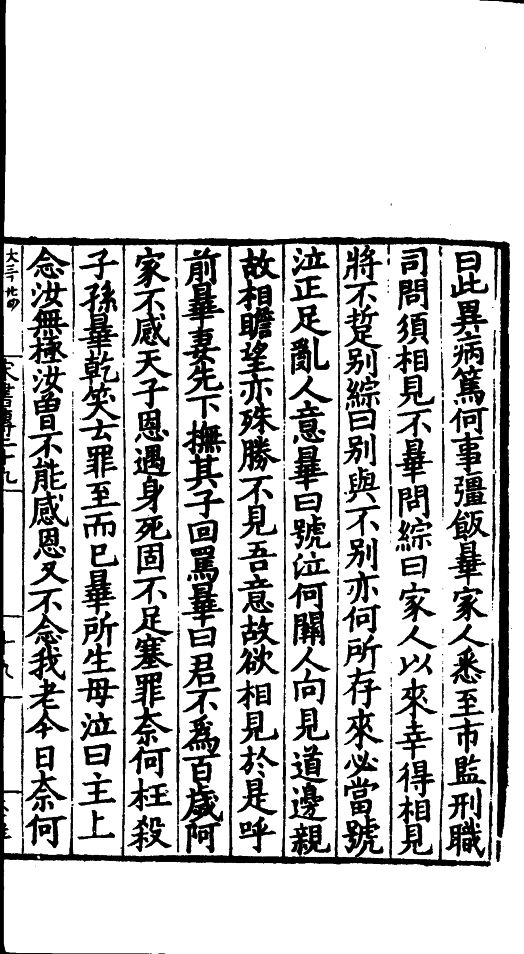 曰此異病篤何事彊飯曅家人悉至市監刑職
司問須相見不曅問綜曰家人以來幸得相見
將不蹔别綜曰别與不别亦何所存來必當號
泣正足亂人意曅曰號泣何關人向見道邊親
故相瞻望亦殊勝不見吾意故欲相見於是呼
前曅妻先下撫其子回罵曅曰君不爲百歲阿
家不感天子恩遇身死固不足塞罪柰何枉殺
子孫曅乾笑云罪至而已曅所生母泣曰主上
念汝無極汝曾不能感恩又不念我老今日柰何
宋書傳二十九
十九